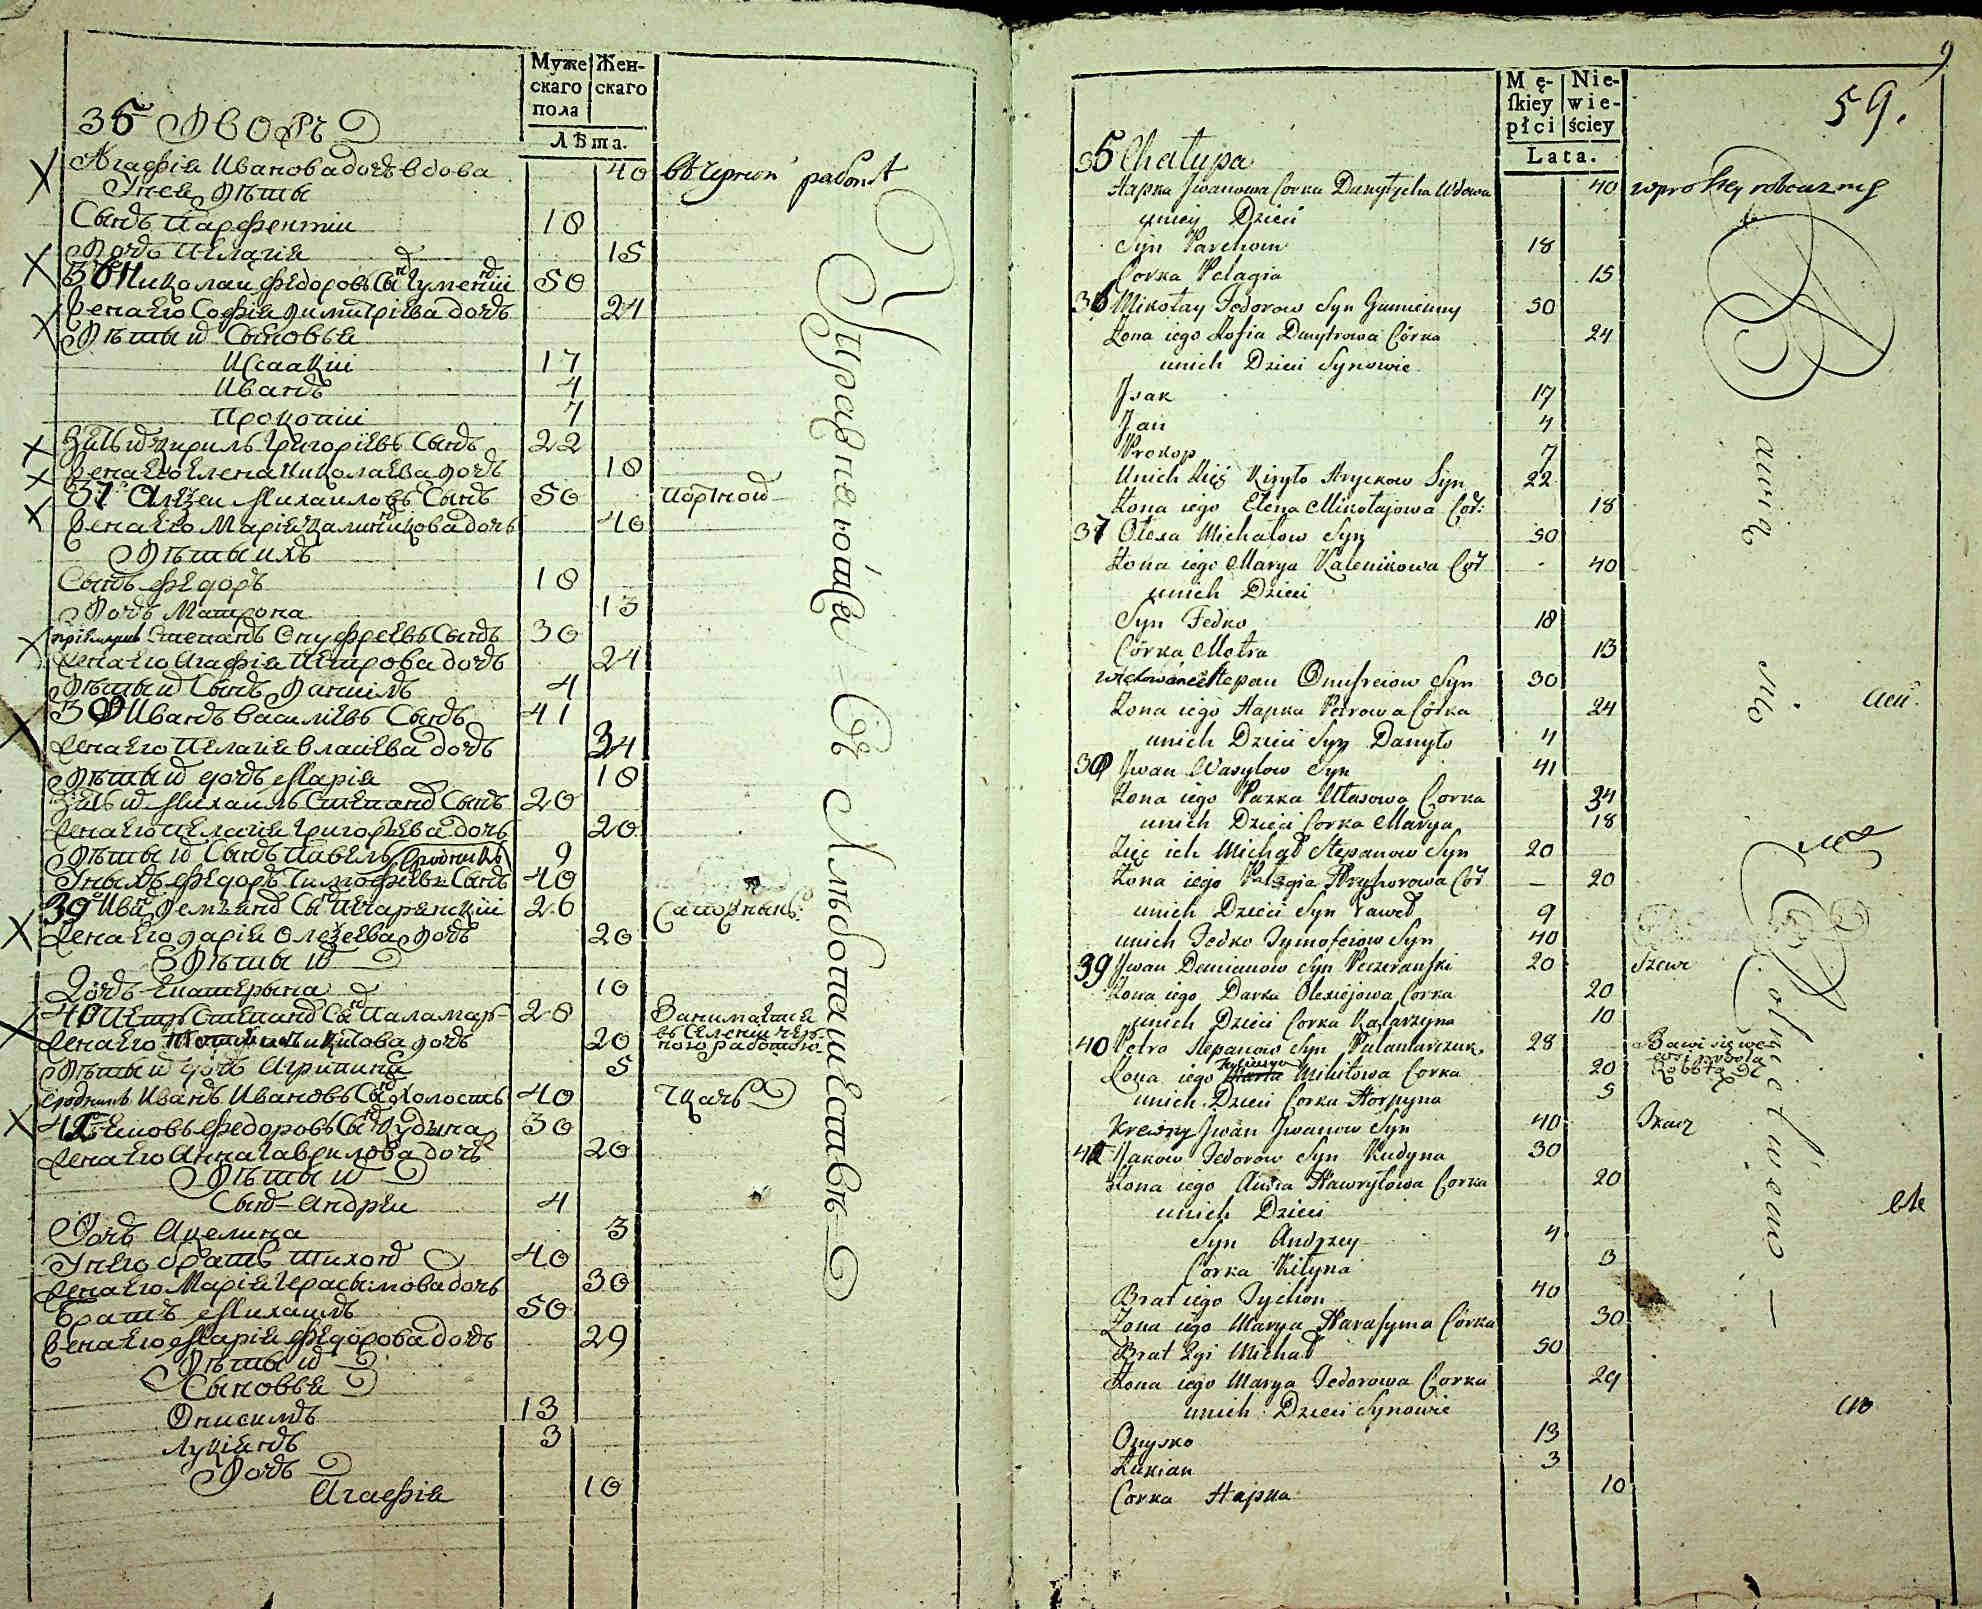 Муже
скаго
пола
Жен-
скаго
Лѣта.
35 Дворъ
Агафія Иванова дочь вдова 40
У нея дѣты
Сынъ Парфентій 18
Дочь Пелагія 15
36 Николай Федоровъ Сынъ Гуменній 50
Жена его Софія Димитріева дочь 24
Дѣты их Сыновья
Исаакій 17
Иванъ 4
Прокопій 7
Зять их Кирилъ Григоріевъ Сынъ 22
Жена его Елена Николаева дочь 18
37 Алексѣй Михайловъ Сынъ 50 портной
Жена его Марія Калиникова дочь 40
Дѣты ихъ
Сынъ Федоръ 18
Дочь Матрона 13
Степанъ Онуфреевъ Сынъ 30
Жена его Агафія Петрова дочь 24
Дѣты их Сынъ Даніилъ 4
38 Иванъ Василіевъ Сынъ 41
Жена его Пелагія Власіева дочь 34
Дѣты их дочь Марія 18
Зять их Михаилъ Степановъ Сынъ 20
Жена его Пелагія Григорьева дочь 20
Дѣты их Сынъ Павелъ 9
У ныхъ Федоръ Тимофѣевъ Сынъ 40
39 Иванъ Демянов Сынъ Печеранскій 26
Жена его Дарія Олексѣева дочь 20
Дѣты их
Дочь Екатерына 10
40 Петръ Степанов Сынъ Паламар 28 Занимается
Жена его Никитова дочь 20
Дѣты их дочь Агрипина 5
сродникъ Иванъ Ивановъ Сынъ Холостъ 40 Ткачъ
41 Яковъ Федоровъ Сынъ Кудына 30
Жена его Анна Гаврилова дочь 20
Дѣты их
Сынъ Андрей 4
Дочь Акелина 3
У него братъ Тихонъ 40
Жена его Марія Герасымова дочь 30
Братъ Михаилъ 50
Жена его Марія Федорова дочь 29
Дѣты их
Сыновья
Онисимъ 13
Лукіянъ 3
Дочь
Агафія 10
Упражняются Въ Хлѣбопашествѣ
9
59.
Mę-
skiey
płci
Nie-
wie-
ściey
Lata.
35 Chałupa
Hapka Jwanowa Corka Danyłycha Wdowa 40
uniey Dzieci
Syn Parchom 18
Corka Pelagia 15
36 Mikołay Fedorow Syn Gumienny 50
Zona iego Zofia Dmytrowa Córka 24
unich Dzieci Synowie
Jsak 17
Jan 4
Prokop 7
Unich Zięć Kiryło Hryckow Syn 22
Zona iego Elena Mikołajowa Cor: 18
37 Olexa Michałow Syn 50
Zona iego Marya Kalenikowa Cor 40
unich Dzieci
Syn Fedko 18
Córka Motra 13
Stepan Onufreiow Syn 30
Zona iego Hapka Petrowa Córka 24
unich Dzieci Syn Danyło 4
38 Jwan Wasylow Syn 41
Zona iego Pazka Ułasowa Corka 34
unich Dzieci Corka Marya 18
Zięć ich Michał Stepanow Syn 20
Zona iego Pelagia Hryhorowa Cor 20
unich Dzieci Syn Paweł 9
unich Fedko Tymofeiow Syn 40
39 Jwan Demianow Syn Peczeranski 20 Szewc
Zona iego Darka Olexiejowa Corka 20
unich Dzieci Corka Katarzyna 10
40 Petro Stepanow Syn Palamarczuk 28
Zona iego Mikitowa Corka 20
unich Dzieci Corka Horpyna 5
Krewny Jwan Jwanow Syn 40 Tkacz
41 Jakow Fedorow Syn Kudyna 30
Zona iego Anna Hawryłowa Corka 20
unich Dzieci
Syn Andrzey 4
Corka Kiłyna 3
Brat iego Tychon 40
Zona iego Marya Harasyma Córka 30
Brat Michał 50
Zona iego Marya Fedorowa Corka 29
unich Dzieci Synowie
Onysko 13
Łukian 3
Corka Hapka 10